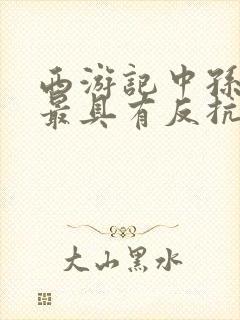 西游記中孫
最具有反抗
大山黑水